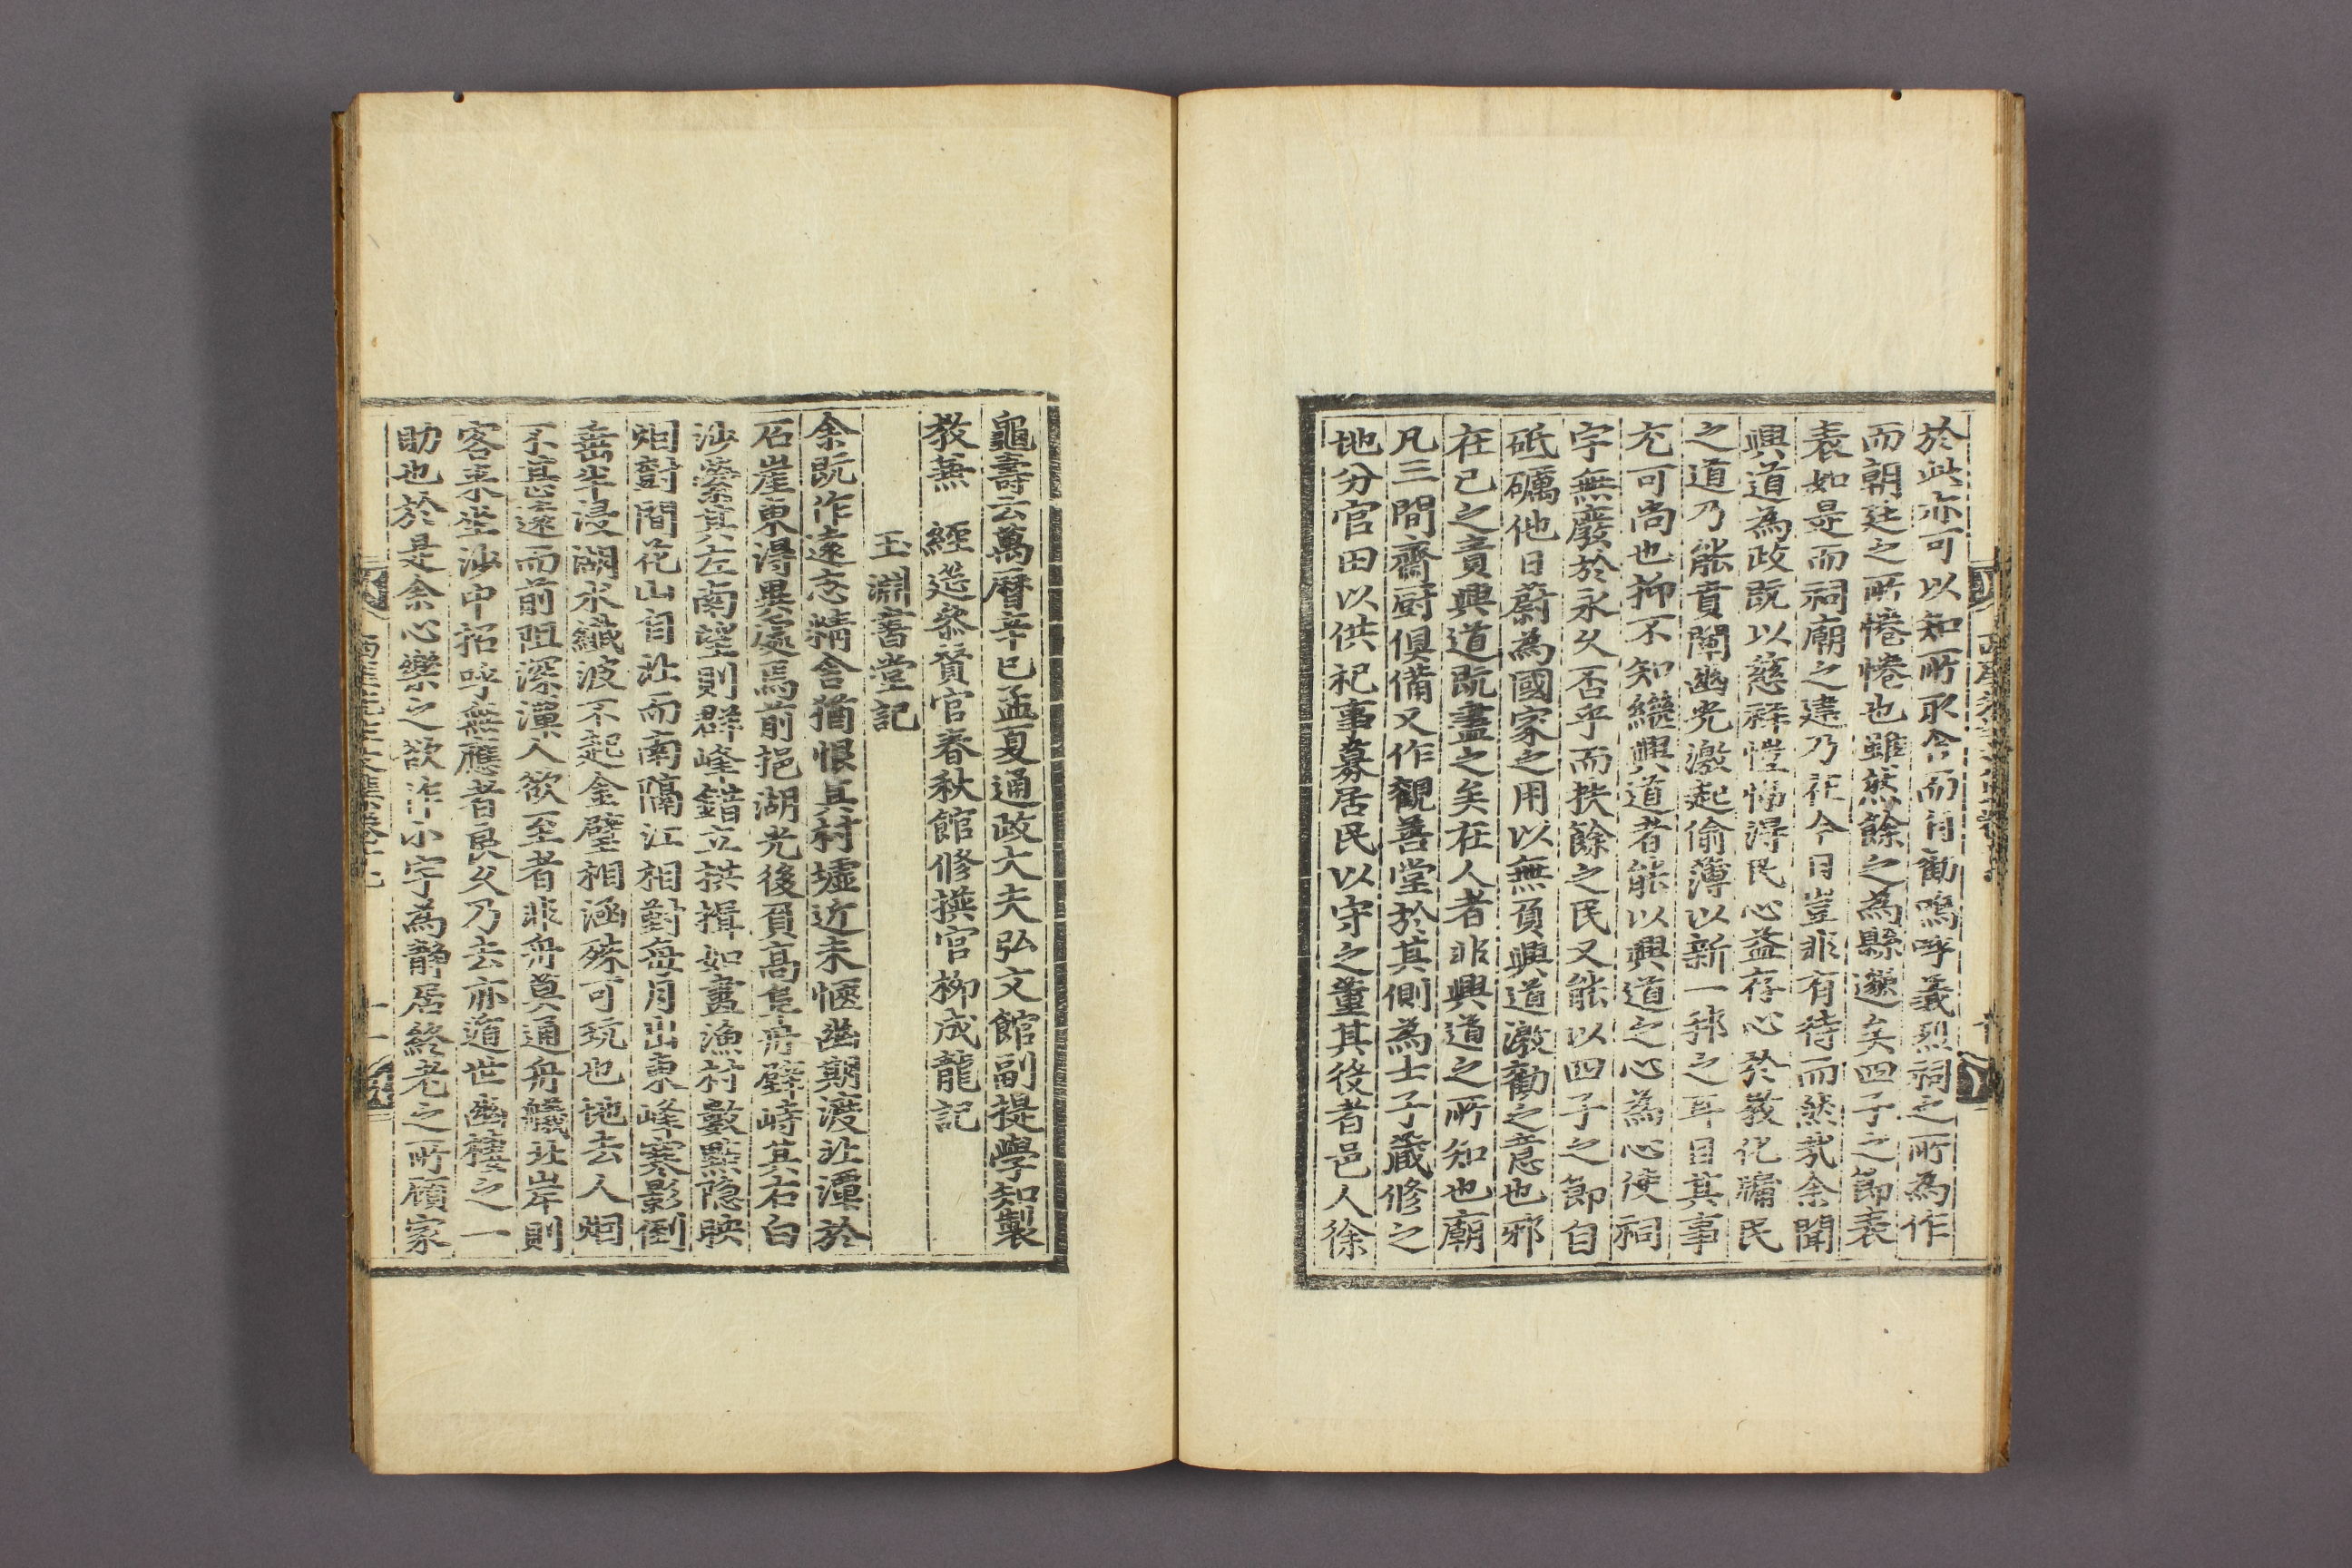 於此亦可以知所取舍而自勸嗚呼義烈祠之所為作
而朝廷之所惓惓也雖然餘之為縣邈矣四子之節表
表如是而祠廟之建乃在今日豈非有待而然哉余聞
興道為政既以慈祥愷悌得民心益存心於敎化牖民
之道乃能賁闡幽光激起偷薄以新一邦之耳目其事
尤可尚也抑不知繼興道者能以興道之心為心使祠
宇無廢於永久否乎而扶餘之民又能以四子之節自
砥礪他日蔚為國家之用以無負興道激勸之意也邪
在己之責興道既盡之矣在人者非興道之所知也廟
凡三間齋廚俱備又作觀善堂於其側為士子藏修之
地分官田以供祀事募居民以守之董其役者邑人徐
龜壽云萬曆辛巳孟夏通政大夫弘文館副提學知製
敎兼 經筵參贊官春秋館修撰官柳成龍記
玉淵書堂記
余既作遠志精舍猶恨其村墟近未愜幽期渡北潭於
石崖東得異處焉前挹湖光後負高阜丹壁峙其右白
沙縈其左南望則群峰錯立拱揖如畫漁村數點隱映
烟對間花山自北而南隔江相對每月出東峰寒影倒
垂半浸湖水纖波不起金璧相涵殊可玩也地去人烟
不甚遠而前阻深潭人欲至者非舟莫通舟艤北岸則
客來坐沙中招呼無應者良久乃去亦遁世幽棲之一
助也於是余心樂之欲作小宇為靜居終老之所顧家